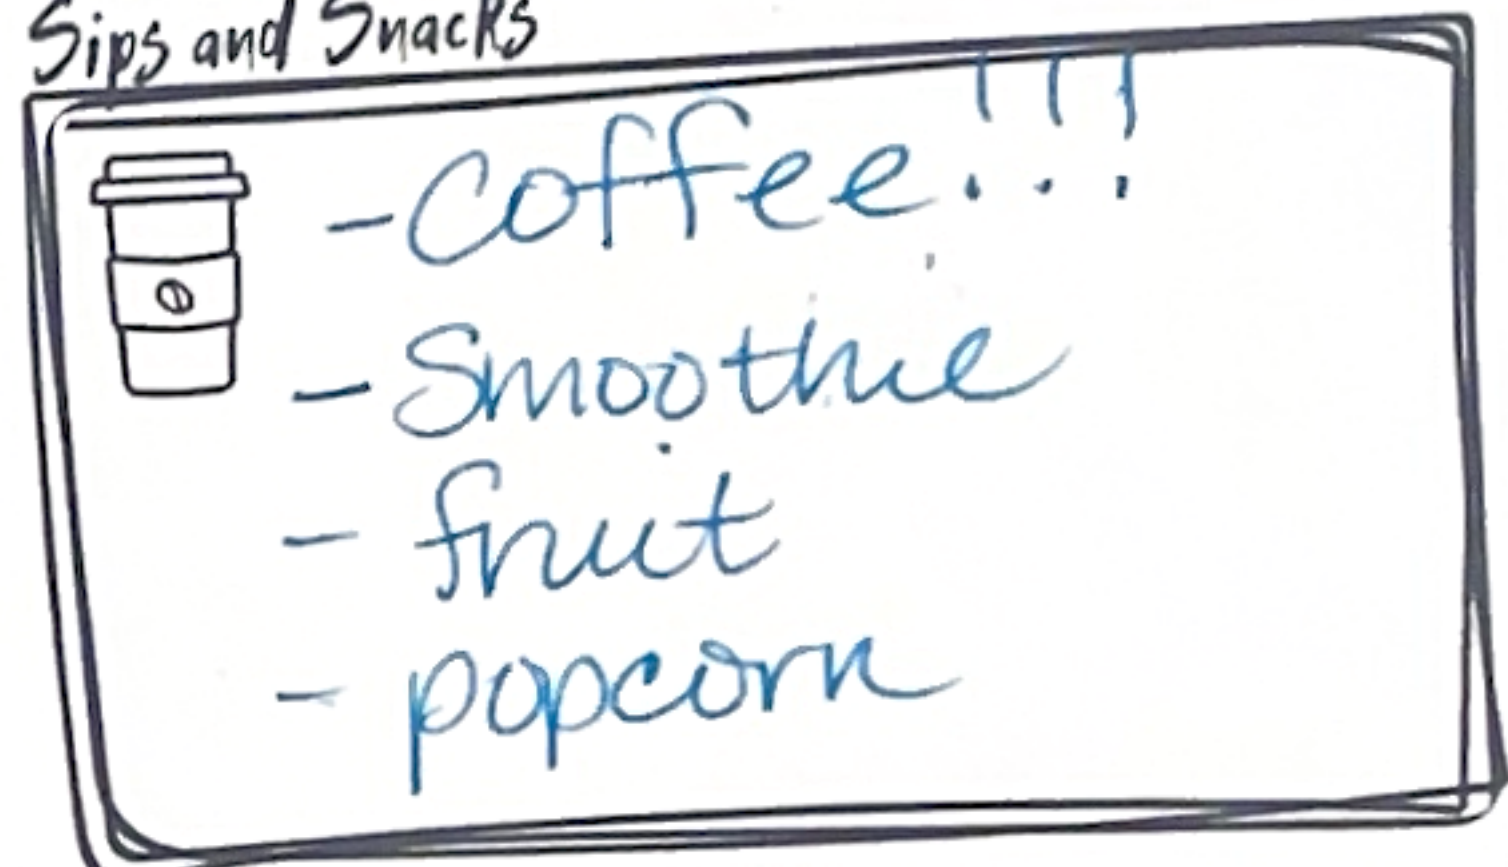 Sips and Snacks
- Coffee!!!
- Smoothie
- fruit
- popcorn